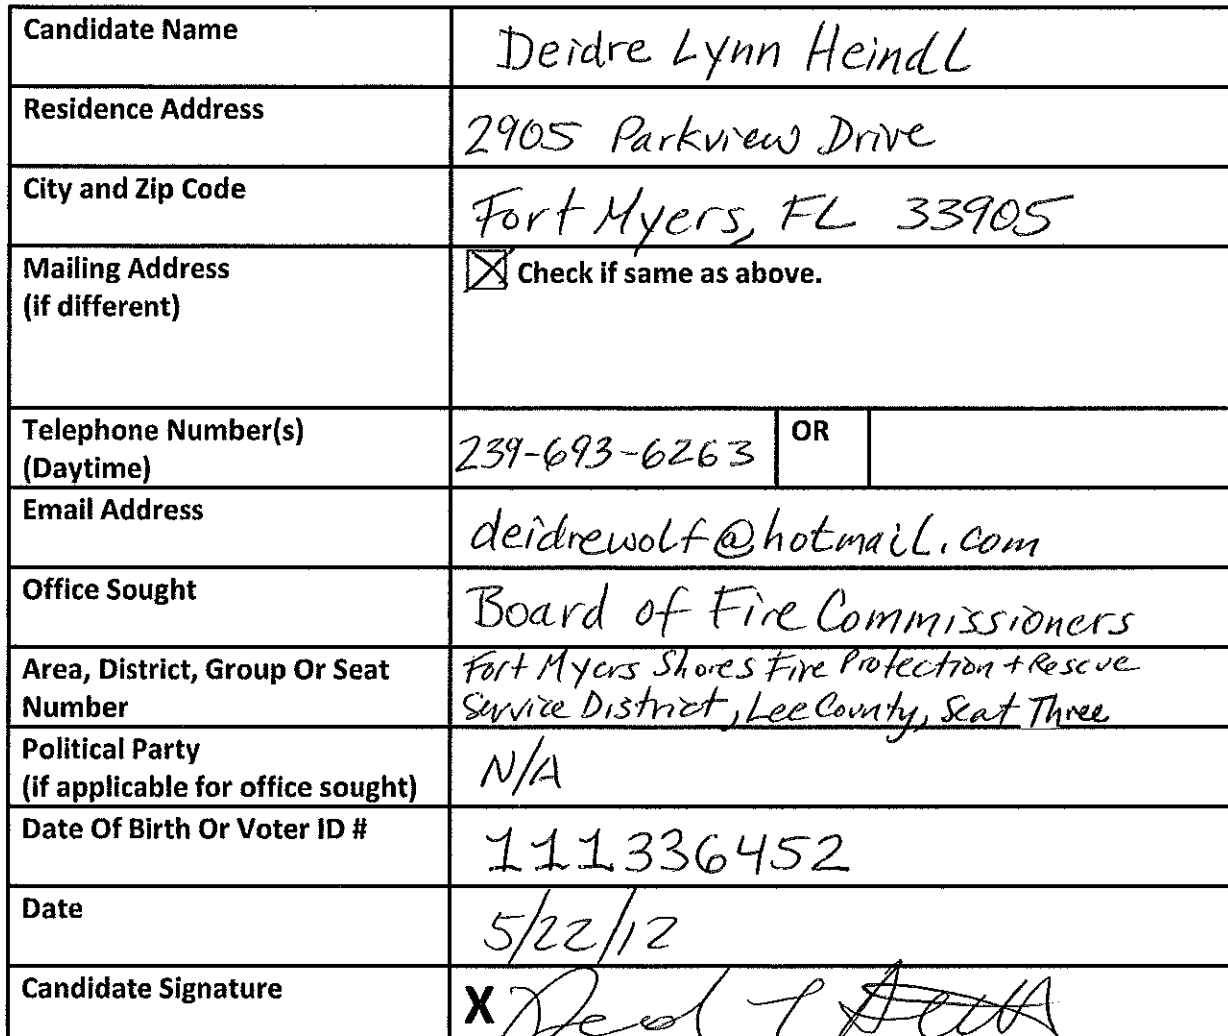 Candidate Name
Deidre Lynn Heindl
Residence Address
2905 Parkview Drive
City and Zip Code
Fort Myers, FL 33905
Mailing Address
(if different)
Check if same as above.
Telephone Number(s)
(Daytime)
239-693-6263
OR
Email Address
deidrewolf@hotmail.com
Office Sought
Board of Fire Commissioners
Area, District, Group Or Seat
Number
Fort Myers Shores Fire Protection + Rescue
Service District, Lee County, Seat Three
Political Party
(if applicable for office sought)
N/A
Date Of Birth Or Voter ID #
111336452
Date
5/22/12
Candidate Signature
X